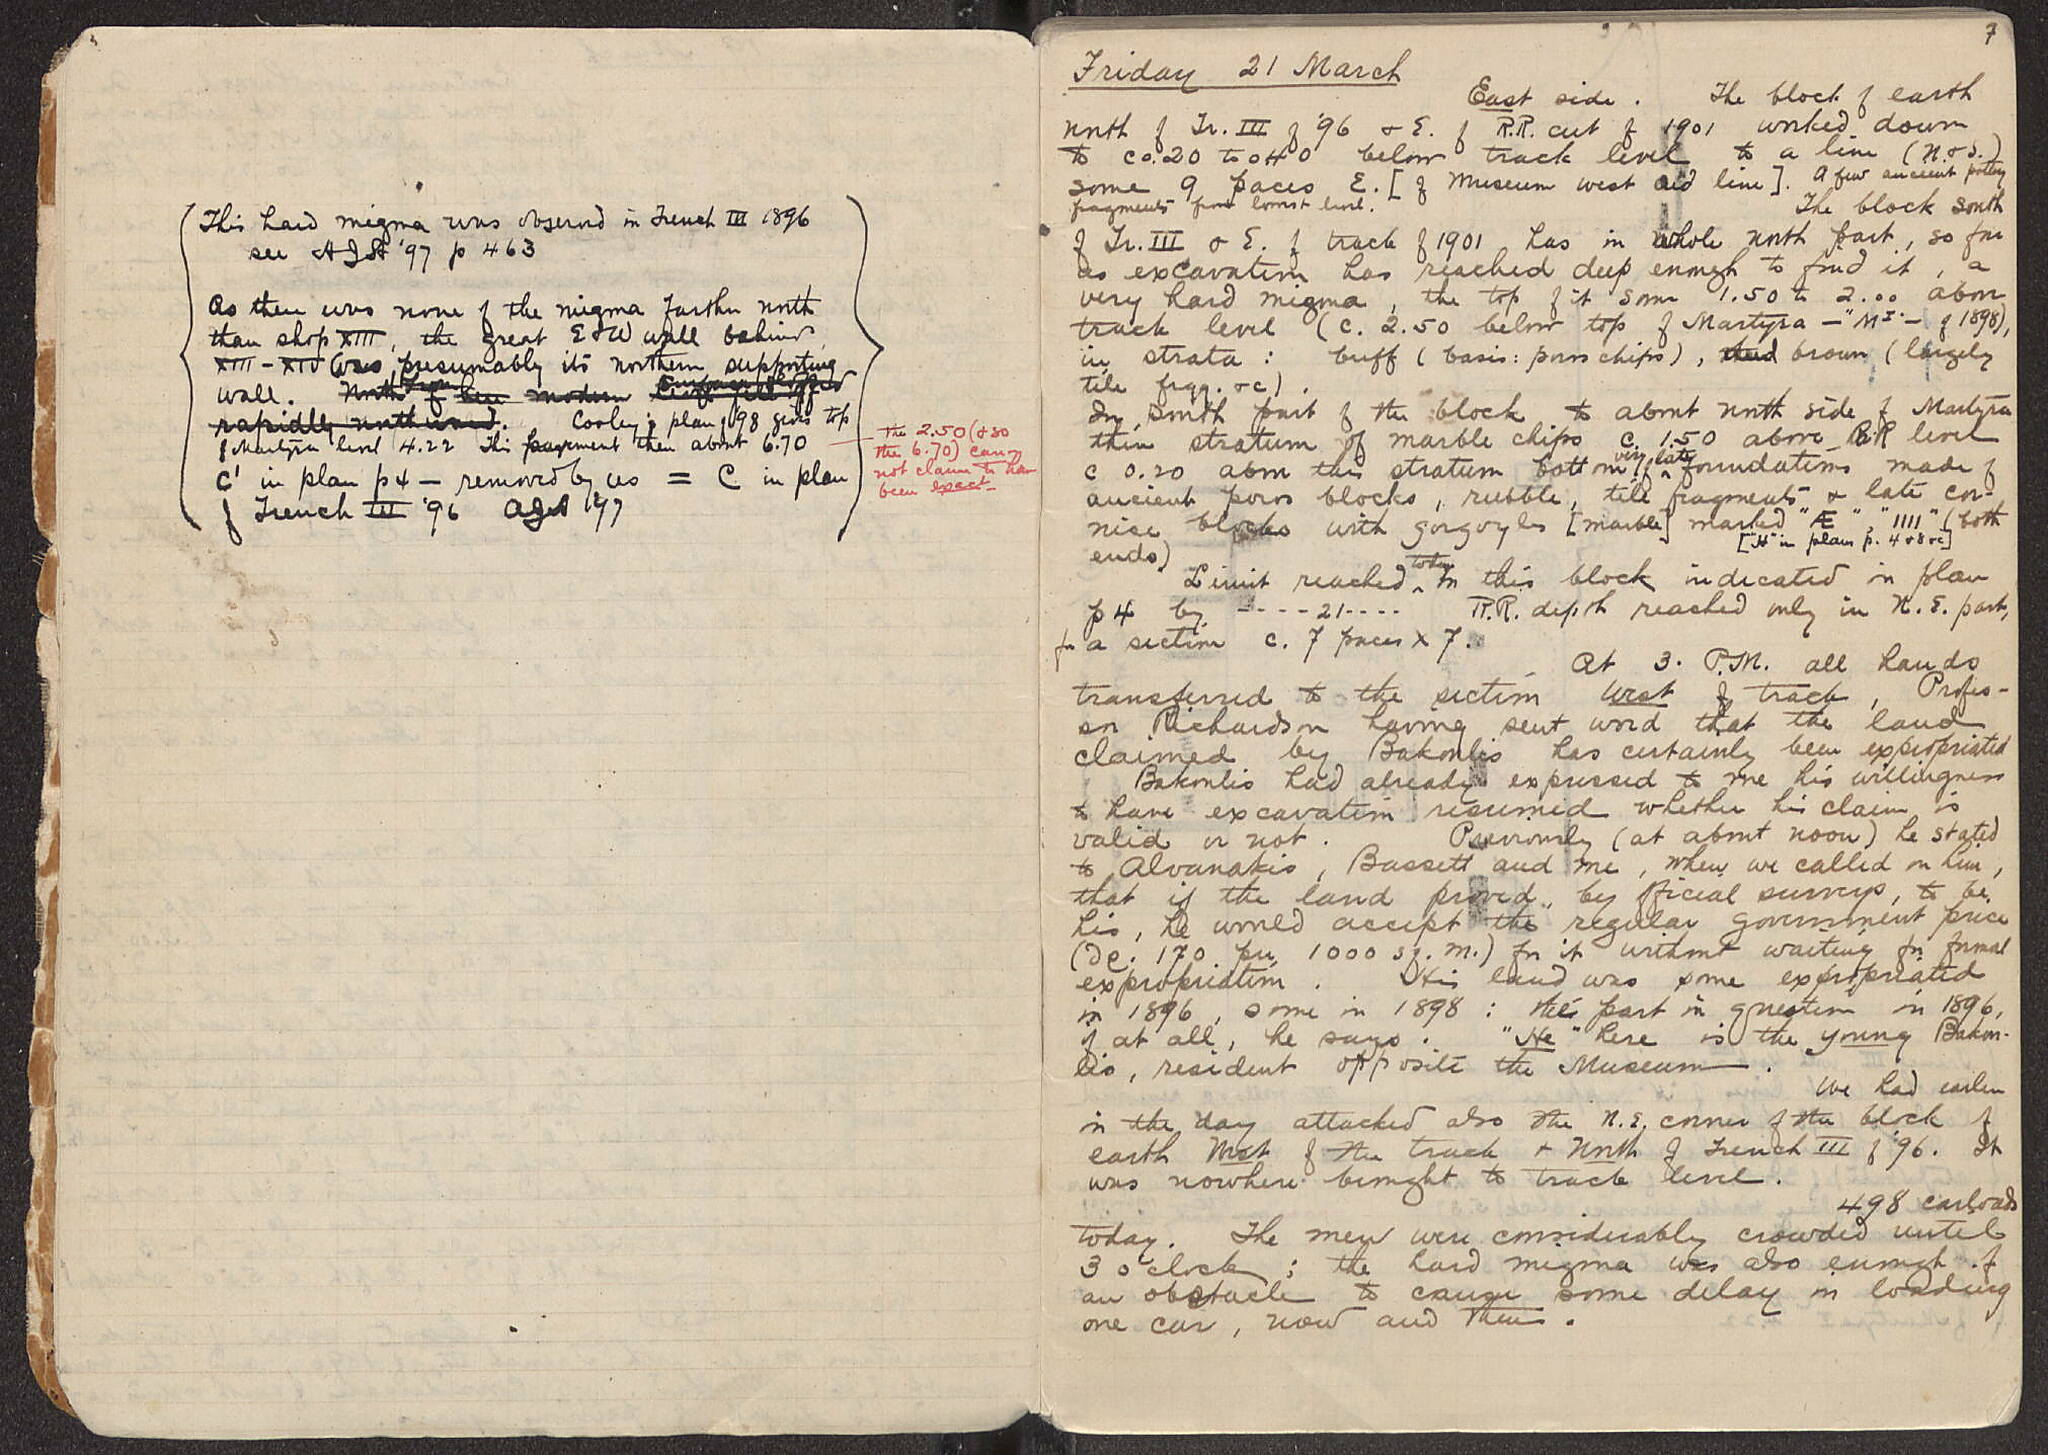 This hard migma was observed in Trench III 1896
see AJA '97 p 463
As there was none of the migma farther north
than shop XIII, the great E & W wall behind
XIII-XIV was presumably its northern supporting
wall. North of here modern
rapidly northward. Cooley's plan of '98 gives top
of Martyra level 4.22 This pavement then about 6.70
C' in plan p 4 — removed by us = C in plan
of Trench III '96 AJA '97
the 2.50 (& so
the 6.70) can
not claim to have
been exact
7
Friday 21 March
East side. The block of earth
north of Tr. III of '96 & E. of R.R. cut of 1901 worked down
to c 0.20 to 0.40 below track level to a line (N. & S.)
some 9 paces E. [of Museum west line]. A few ancient pottery
fragments from lowest level.
The block south
of Tr. III & E. of track of 1901 has in whole north part, so far
as excavation has reached deep enough to find it, a
very hard migma, the top of it some 1.50 to 2.00 above
track level (c. 2.50 below top of Martyra — "M I" — of 1898),
in strata: buff (basis: poros chips), brown (largely
tile frgg. &c).
In south part of the block to about north side of Martyra
thin stratum of marble chips c. 1.50 above RR level
c 0.20 above this stratum bottom of very late foundations made of
ancient poros blocks, rubble, tile fragments & late cor-
nice blocks with gorgoyles [marble] marked "Æ", "IIII" (both
["H" in plans p. 4 & 8 &c]
ends)
Limit reached today in this block indicated in plan
p 4 by ----21---- R.R. depth reached only in N.E. part,
for a section c. 7 paces x 7.
At 3. P.M. all hands
transferred to the section West of track, Profes-
sor Richardson having sent word that the land
claimed by Bakoulis has certainly been expropriated
Bakoulis had already expressed to me his willingness
to have excavation resumed whether his claim is
valid or not. Previously (at about noon) he stated
to Alvanakis, Bassett and me, when we called on him,
that if the land proved, by official surveys, to be
his, he would accept the regular government price
(De. 170 per 1000 sq. m.) for it without waiting for formal
expropriation. His land was some expropriated
in 1896, some in 1898: the part in question in 1896,
if at all, he says. "He" here is the young Bakou-
lis, resident opposite the Museum.
We had earlier
in the day attacked also the N.E. corner of the block of
earth West of the track & North of Trench III of '96. It
was nowhere brought to track level.
498 carloads
today. The men were considerably crowded until
3 o'clock; the hard migma was also enough of
an obstacle to cause some delay in loading
one car, now and then.